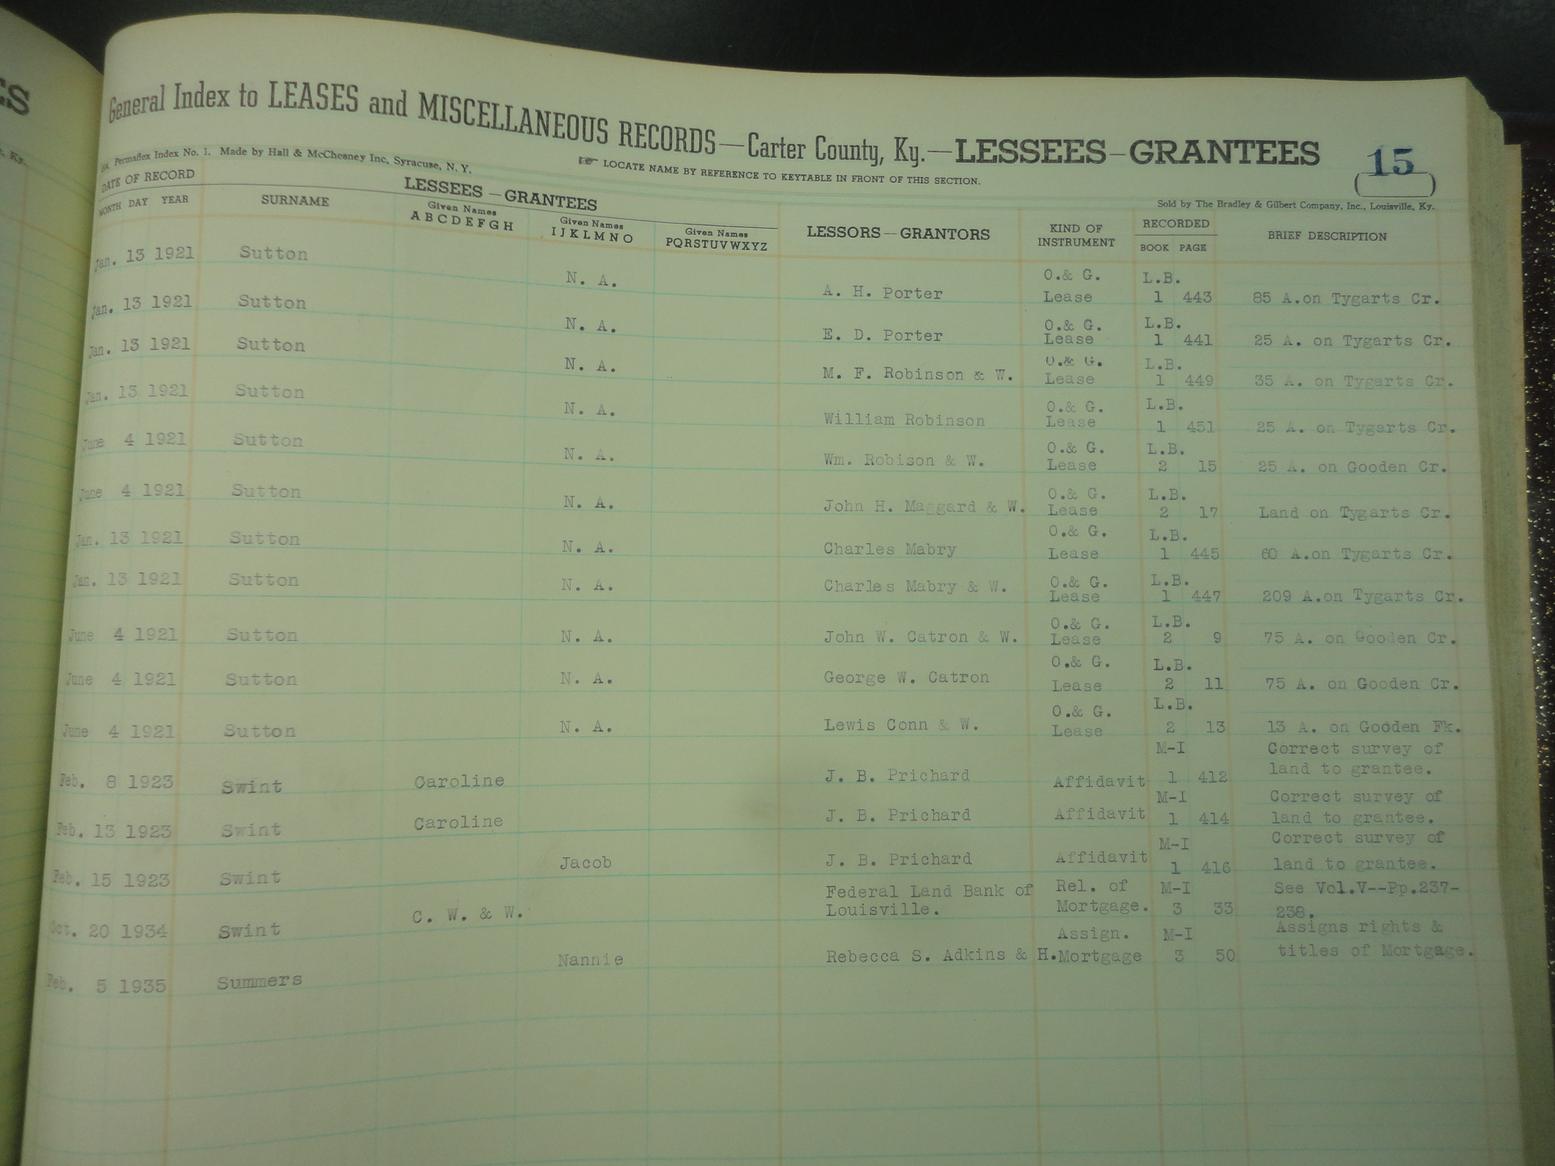 ES
, Ky.
General Index to LEASES and MISCELLANEOUS RECORDS—Carter County, Ky.—LESSEES—GRANTEES
15
Permaflex Index No. 1. Made by Hall & McChesney Inc, Syracuse, N. Y.
☞ LOCATE NAME BY REFERENCE TO KEYTABLE IN FRONT OF THIS SECTION.
Sold by The Bradley & Gilbert Company, Inc., Louisville, Ky.
DATE OF RECORD LESSEES—GRANTEES LESSORS—GRANTORS KIND OF INSTRUMENT RECORDED BRIEF DESCRIPTION
MONTH DAY YEAR SURNAME Given Names A B C D E F G H Given Names I J K L M N O Given Names PQRSTUVWXYZ BOOK PAGE
Jan. 13 1921 Sutton N. A. A. H. Porter O.& G. Lease L.B. 1 443 85 A.on Tygarts Cr.
Jan. 13 1921 Sutton N. A. E. D. Porter O.& G. Lease L.B. 1 441 25 A. on Tygarts Cr.
Jan. 13 1921 Sutton N. A. M. F. Robinson & W. O.& G. Lease L.B. 1 449 35 A. on Tygarts Cr.
Jan. 13 1921 Sutton N. A. William Robinson O.& G. Lease L.B. 1 451 25 A. on Tygarts Cr.
June 4 1921 Sutton N. A. Wm. Robison & W. O.& G. Lease L.B. 2 15 25 A. on Gooden Cr.
June 4 1921 Sutton N. A. John H. Maggard & W. O.& G. Lease L.B. 2 17 Land on Tygarts Cr.
Jan. 13 1921 Sutton N. A. Charles Mabry O.& G. Lease L.B. 1 445 60 A.on Tygarts Cr.
Jan. 13 1921 Sutton N. A. Charles Mabry & W. O.& G. Lease L.B. 1 447 209 A.on Tygarts Cr.
June 4 1921 Sutton N. A. John W. Catron & W. O.& G. Lease L.B. 2 9 75 A. on Gooden Cr.
June 4 1921 Sutton N. A. George W. Catron O.& G. Lease L.B. 2 11 75 A. on Gooden Cr.
June 4 1921 Sutton N. A. Lewis Conn & W. O.& G. Lease L.B. 2 13 13 A. on Gooden Fk.
Feb. 8 1923 Swint Caroline J. B. Prichard Affidavit M-I 1 412 Correct survey of land to grantee.
Feb. 13 1923 Swint Caroline J. B. Prichard Affidavit M-I 1 414 Correct survey of land to grantee.
Feb. 15 1923 Swint Jacob J. B. Prichard Affidavit M-I 1 416 Correct survey of land to grantee.
Oct. 20 1934 Swint C. W. & W. Federal Land Bank of Louisville. Rel. of Mortgage. M-I 3 33 See Vol.V--Pp.237-238.
Feb. 5 1935 Summers Nannie Rebecca S. Adkins & H. Assign. Mortgage M-I 3 50 Assigns rights & titles of Mortgage.